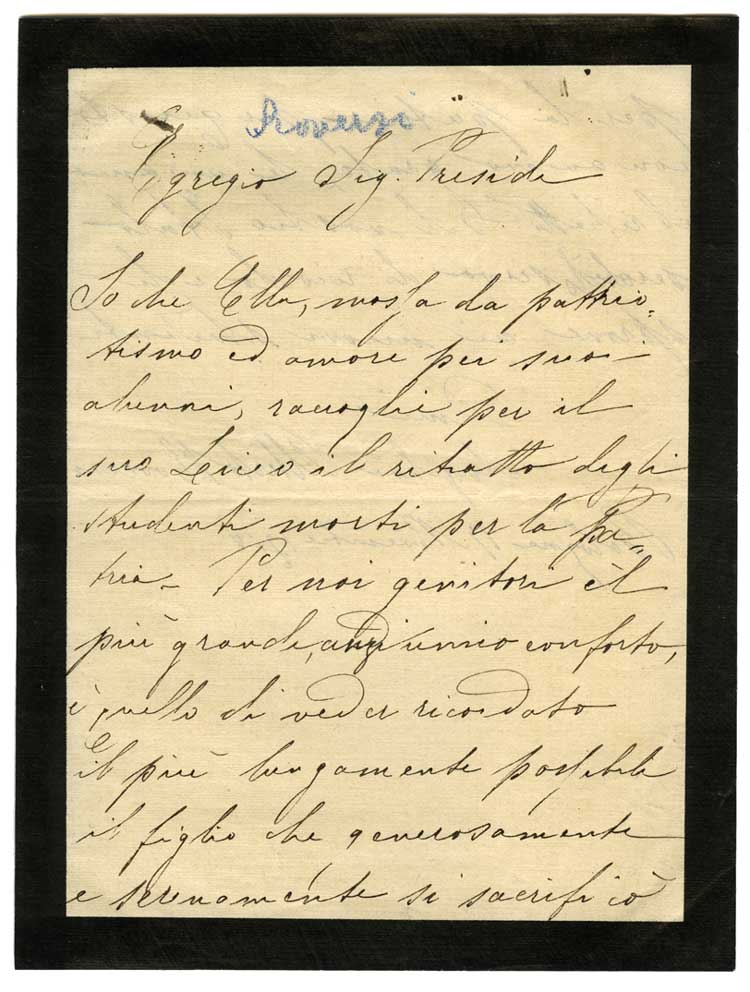 Roversi
Egregio Sig. Preside
So che Ella, mossa da patrio-
tismo ed amore per suoi
alunni, raccoglie per il
suo Liceo il ritratto degli
studenti morti per la Pa-
tria - Per noi genitori il
più grande, anzi unico conforto,
è quello di veder ricordato
il più lungamente possibile
il figlio che generosamente
e serenamente si sacrificò